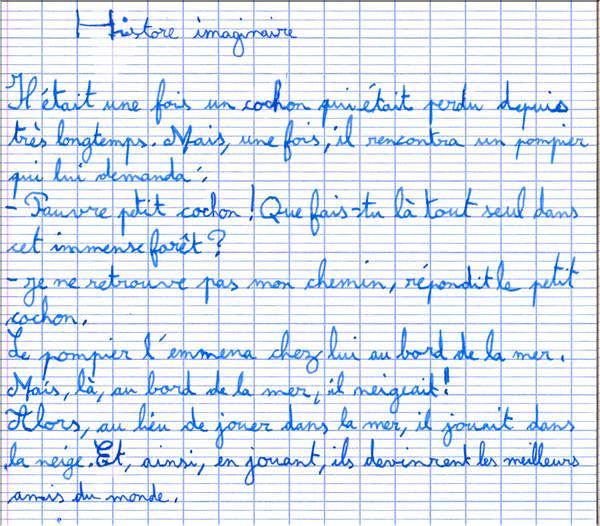 Histore imaginaire
Il était une fois un cochon qui était perdu depuis
très longtemps. Mais, une fois, il rencontra un pompier
qui lui demanda :
- Pauvre petit cochon ! Que fais-tu là tout seul dans
cet immense farêt ?
- Je ne retrouve pas mon chemin, répondit le petit
cochon.
Le pompier l'emmena chez lui au bord de la mer.
Mais, là, au bord de la mer, il neigeait !
Alors, au lieu de jouer dans la mer, il jouait dans
la neige. Et, ainsi, en jouant, ils devinrent les meilleurs
amis du monde.